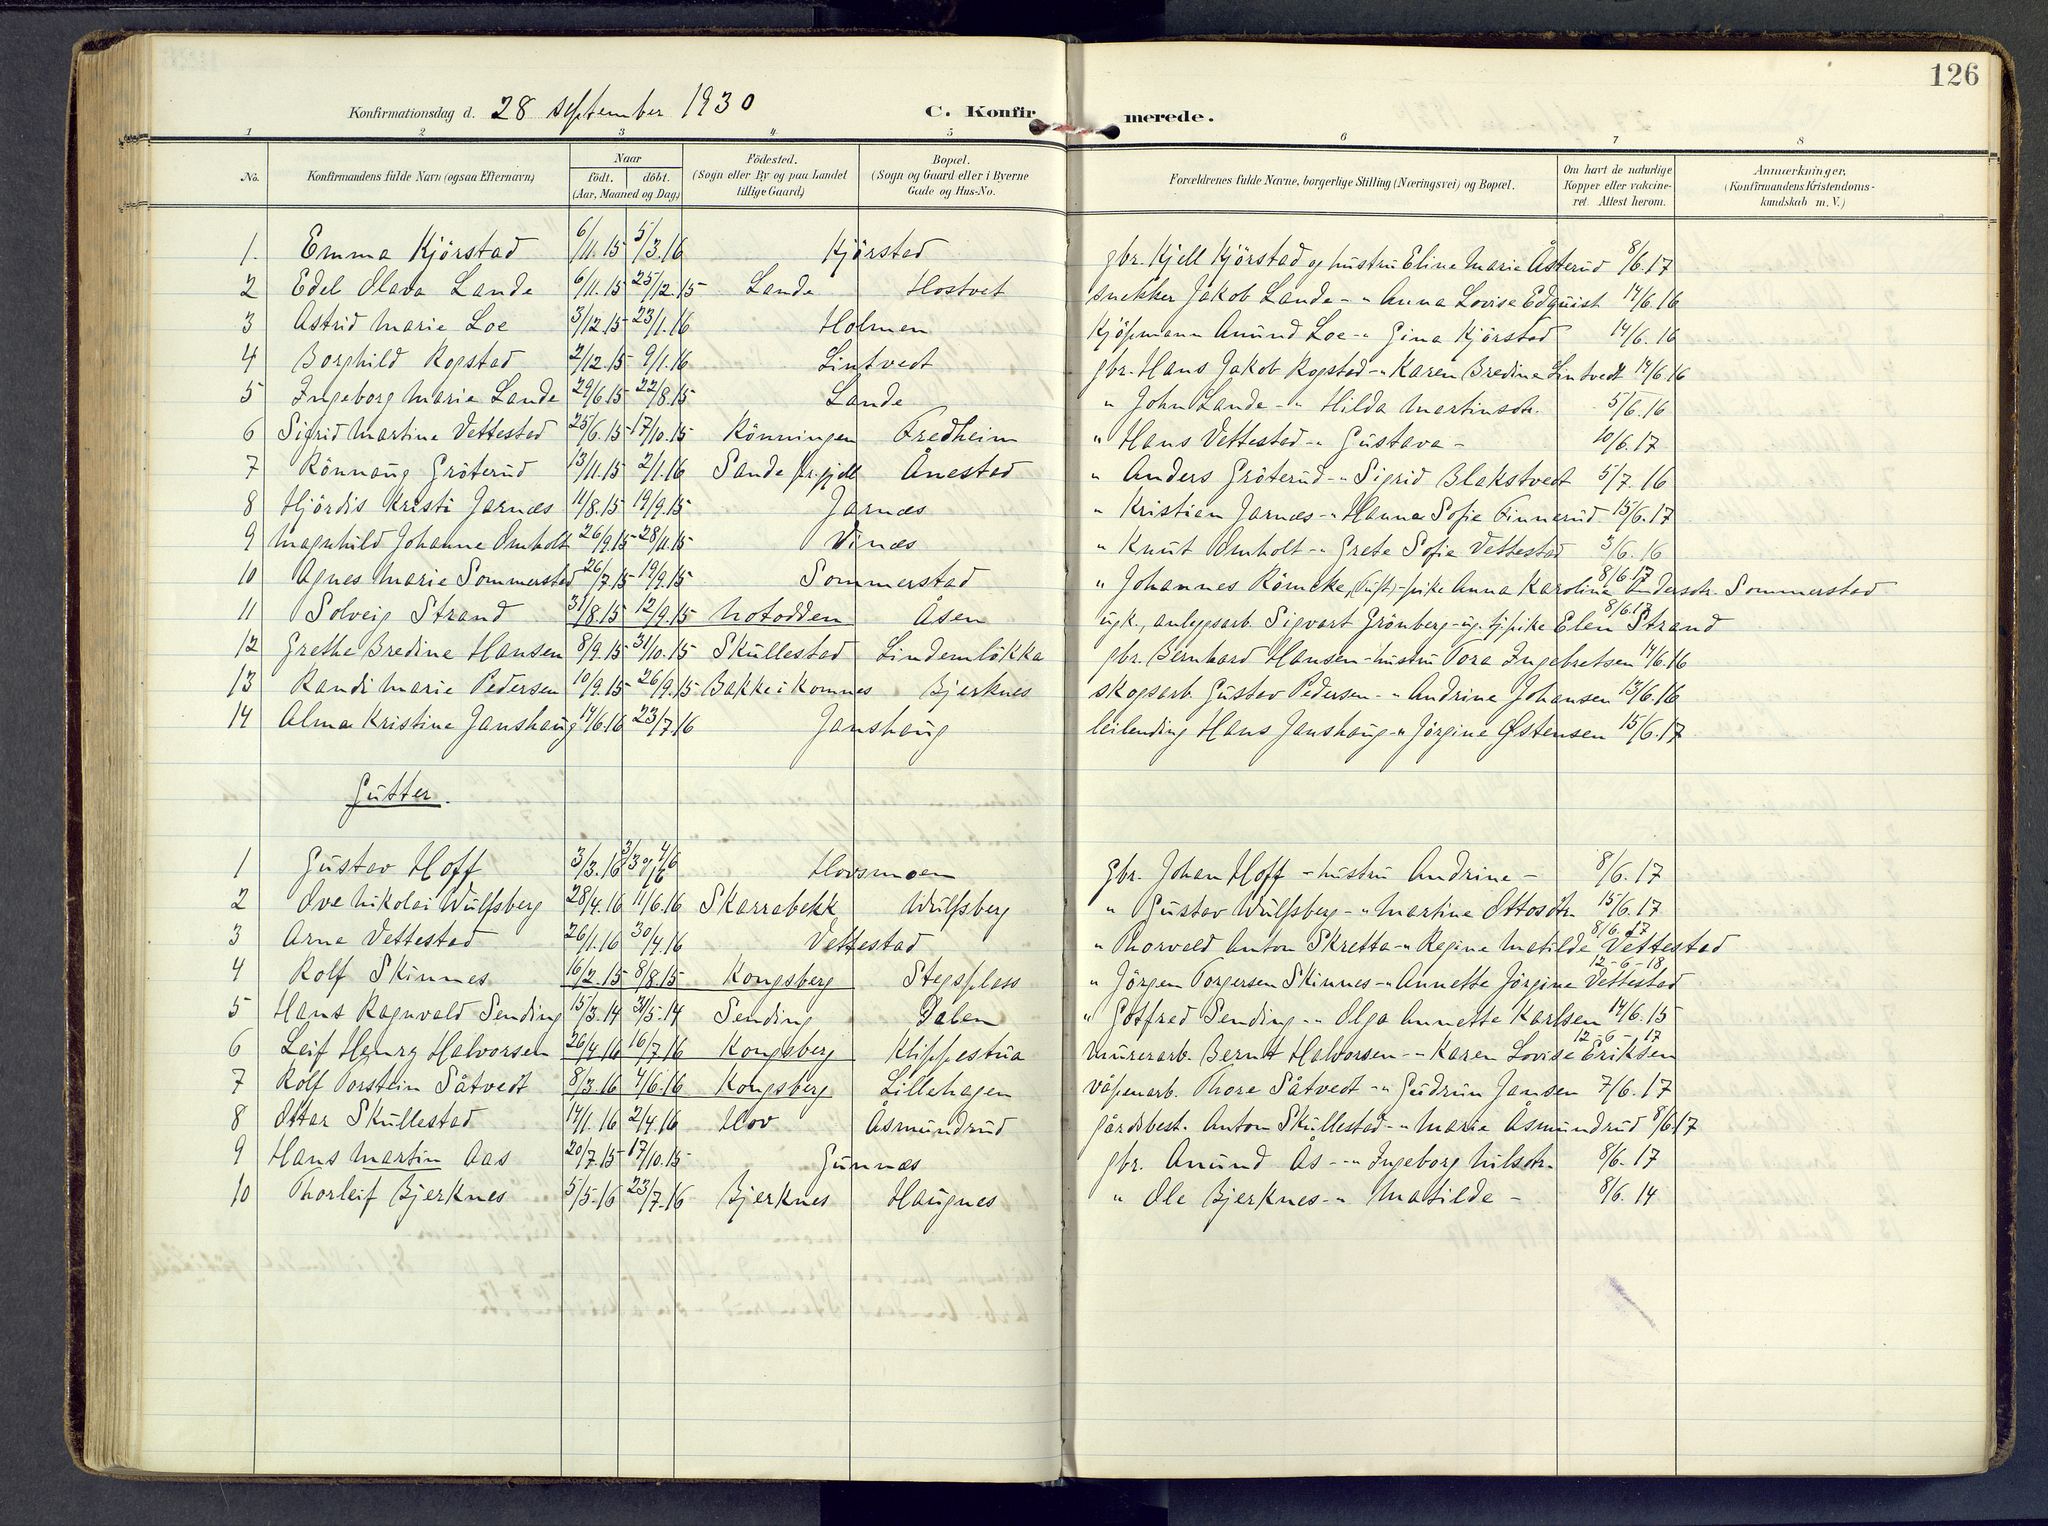 126
Konfirmationsdag d. 28 september 1930 C. Konfirmerede.
1 2 3 4 5 6 7 8
No. Konfirmandens fulde Navn (ogsaa Efternavn) Naar födt. döbt. (Aar, Maaned og Dag) Födested. (Sogn eller By og paa Landet tillige Gaard) Bopæl. (Sogn og Gaard eller i Byerne Gade og Hus-No. Forældrenes fulde Navne, borgerlige Stilling (Næringsvei) og Bopæl. Om havt de naturlige Kopper eller vakcineret. Attest herom. Anmærkninger, (Konfirmandens Kristendomskundskab m. V.)
1. Emma Kjörstad 6/11.15 5/3.16 Kjörstad gbr. Kjell Kjörstad og hustru Eline Marie Åsterud 8/6.17
2 Edel Olava Lande 6/11.15 25/12.15 Lande Hostvet snekker Jakob Lande -" Anna Lovise Edquist 14/6.16
3 Astrid Marie Loe 3/12.15 23/1.16 Holmen Kjöpmann Amund Loe -" Gina Kjörstad 14/6.16
4 Borghild Rogstad 2/12.15 9/1.16 Lintvedt gbr. Hans Jakob Rogstad -" Karen Bredine Lintvedt 14/6.16
5 Ingeborg Marie Lande 29/6.15 22/8.15 Lande " John Lande -" Hilda Martinsdtr. 5/6.16
6 Sigrid Martine Vettestad 25/6.15 17/10.15 Rönningen Fredheim " Hans Vettestad -" Gustava - 10/6.17
7 Rönnaug Gröterud 13/11.15 2/1.16 Sande pr.gjell Ånestad " Anders Gröterud -" Sigrid Blakstvedt 5/7.16
8 Hjördis Kristi Jarnæs 11/8.15 19/9.15 Jarnæs " Kristian Jarnæs -" Hanna Sofie Finnerud 15/6.17
9 Magnhild Johanne Omholt 26/9.15 28/11.15 Vinæs " Knut Omholt -" Grete Sofie Vettestad 3/6.16
10 Agnes Marie Sommerstad 26/7.15 19/9.15 Sommerstad " Johannes Römcke, (gift) - pike Anna Karolina Andersdtr. Sommerstad 8/6.17
11 Solveig Strand 31/8.15 12/9.15 Notodden Åsen ugk., anlegsarb. Sigvart Grönberg - ug. tj.pike Elen Strand 8/6.17
12 Grethe Bredine Hansen 8/9.15 31/10.15 Skullestad Lindemlökka gbr. Bernhard Hansen - hustru Tora Ingebretsen 14/6.16
13 Randi Marie Pedersen 10/9.15 26/9.15 Bakke i Komnes Bjerknes skogsarb. Gustav Pedersen -" Andrine Johansen 13/6.16
14 Alma Kristine Janshaug 14/6.16 23/7.16 Janshaug leilending Hans Janshaug -" Jörgine Østensen 15/6.17
Gutter.
1 Gustav Hoff 3/3.16 Hovsmoen Gbr. Johan Hoff - hustru Andrine - 8/6.17
2 Ove Nikolai Wulfsberg 28/4.16 11/6.16 Skarrabekk Wulfsberg " Gustav Wulfsberg -" Martine Ottosdtr. 15/6.17
3 Arne Vettestad 26/1.16 30/4.16 Vettestad " Thorvald Anton Skretta -" Regine Matilde Vettestad 8/6.17
4 Rolf Skinnes 16/2.15 8/8.15 Kongsberg Stegsplass " Jörgen Torgersen Skinnes -" Annette Jörgine Vettestad 12-6-18
5 Hans Ragnvald Sending 15/3.14 31/5.14 Sending Dalen " Gotfred Sending -" Olga Annette Karlsen 14/6.15
6 Leif Henry Halvorsen 26/4.16 16/7.16 Kongsberg Klippestua murerarb. Bernt Halvorsen -" Karen Lovise Eriksen 12-6-17
7 Rolf Torstein Såtvedt 8/3.16 4/6.16 Kongsberg Lillehagen våpenarb. Thore Såtvedt -" Gudrun Jansen 7/6.17
8 Ottar Skullestad 14/1.16 2/4.16 Hov Åsmundrud gårdsbest. Anton Skullestad -" Marie Åsmundrud 8/6.17
9 Hans Martin Aas 20/7.15 17/10.15 Gunnæs gbr. Amund Ås -" Ingeborg Nilsdtr. 8/6.17
10 Thorleif Bjerknes 5/5.16 23/7.16 Bjerknes Haugnes " Ole Bjerknes -" Matilde - 8/6.14